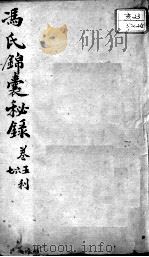 馮氏錦囊秘録
卷五六七
利